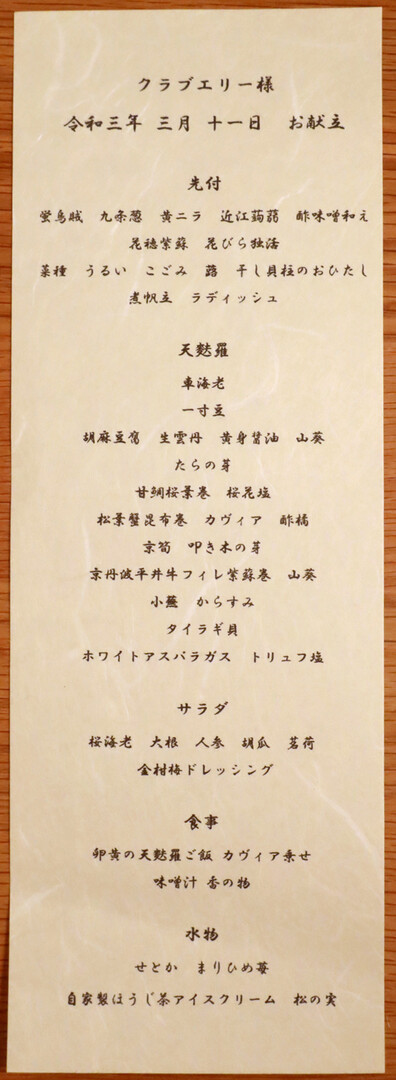 クラブエリー様
令和三年 三月 十一日 お献立
先付
蛍烏賊 九条葱 黄ニラ 近江蒟蒻 酢味噌和え
花穂紫蘇 花びら独活
菜種 うるい こごみ 蕗 干し貝柱のおひたし
煮帆立 ラディッシュ
天麩羅
車海老
一寸豆
胡麻豆腐 生雲丹 黄身醤油 山葵
たらの芽
甘鯛桜葉巻 桜花塩
松葉蟹昆布巻 カヴィア 酢橘
京筍 叩き木の芽
京丹波平井牛フィレ紫蘇巻 山葵
小蕪 からすみ
タイラギ貝
ホワイトアスパラガス トリュフ塩
サラダ
桜海老 大根 人参 胡瓜 茗荷
金柑梅ドレッシング
食事
卵黄の天麩羅ご飯 カヴィア乗せ
味噌汁 香の物
水物
せとか まりひめ苺
自家製ほうじ茶アイスクリーム 松の実